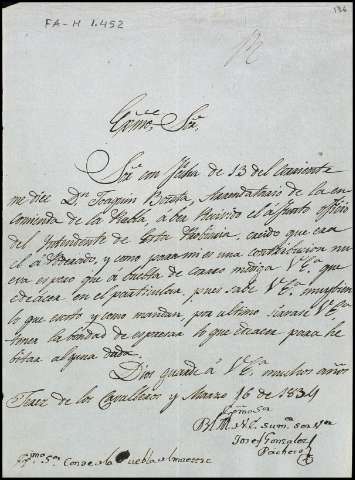 FA-H 1.452
136
Exmo. Sor.
Sor con fecha de 13 del corriente
me dice Dn Joaquin Boreta, Arrendatario de la en
comienda de la Puebla, a ber Recivido el adjunto officio
del Yntendente de esta Probincia, cuido que era
el adeudo, y como para mi es una contribucion nu
eva espero que a buelta de correo me diga V.Ea. que
de acer en el particular, pues sabe V.Ea. muy bien
lo que corto y como mandan, por ultimo sirvase V.Ea.
tener la bondad de espresar lo que de acer para he
bitar alguna duda.
Dios guarde á V.Ea. muchos años
Jerez de los Cavalleros y Marzo 16 de 1834
Exmo Sor
B.L.M. de V.E. su mas. servor
Jose Gonzalez
Pacheco
Exmo Sor Conde de la Puebla del Maestre